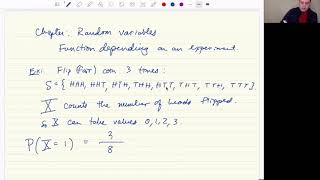 Chapter: Random variables
Function depending on an experiment.
Ex: Flip (fair) coin 3 times:
S = { HHH, HHT, HTH, THH, HTT, THT, TTH, TTT }
X counts the number of heads flipped.
so X can take values 0, 1, 2, 3
P(X = 1) = 3/8